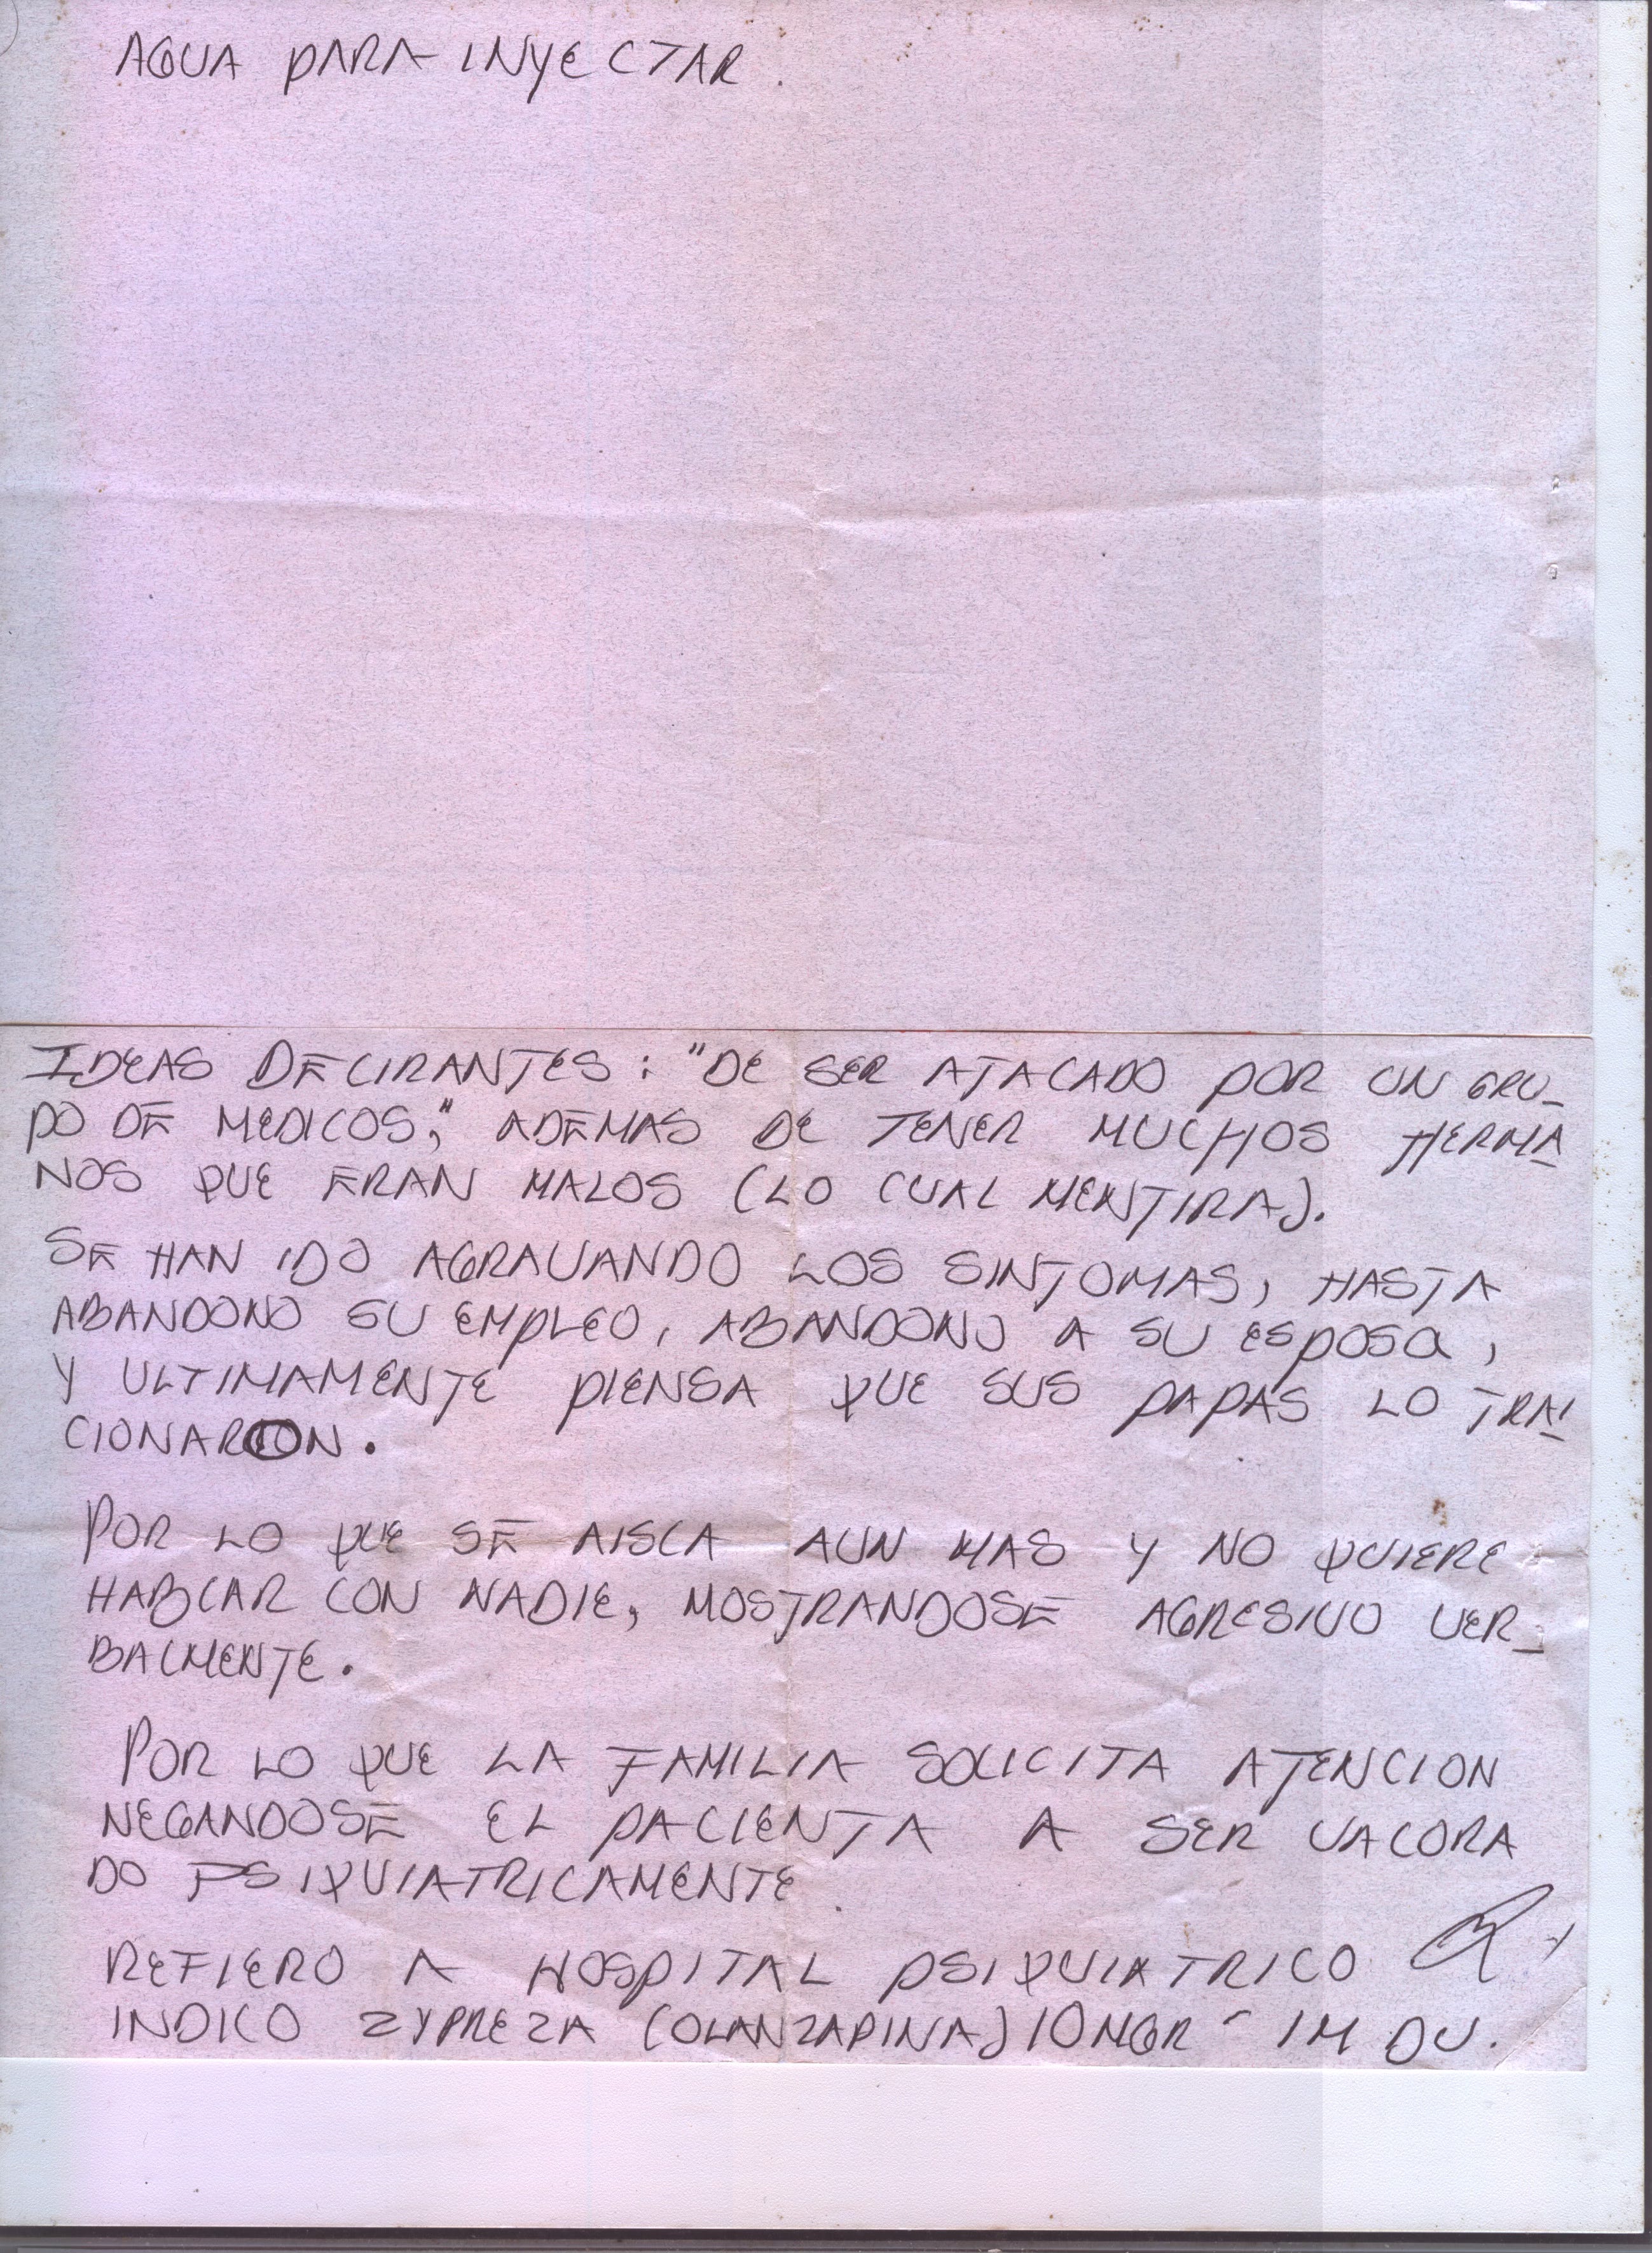 AGUA PARA INYECTAR.
IDEAS DELIRANTES: "DE SER ATACADO POR UN GRU-
PO DE MEDICOS," ADEMAS DE TENER MUCHOS HERMA
NOS QUE ERAN MALOS (LO CUAL MENTIRA).
SE HAN IDO AGRAVANDO LOS SINTOMAS, HASTA
ABANDONO SU EMPLEO, ABANDONO A SU ESPOSA,
Y ULTIMAMENTE PIENSA QUE SUS PAPAS LO TRAI
CIONARON.
POR LO QUE SE AISLA AUN MAS Y NO QUIERE
HABLAR CON NADIE, MOSTRANDOSE AGRESIVO VER-
BALMENTE.
POR LO QUE LA FAMILIA SOLICITA ATENCION
NEGANDOSE EL PACIENTA A SER VALORA
DO PSIQUIATRICAMENTE.
REFIERO A HOSPITAL PSIQUIATRICO
INDICO ZYPREZA (OLANZAPINA) 10MGR - IM DU.